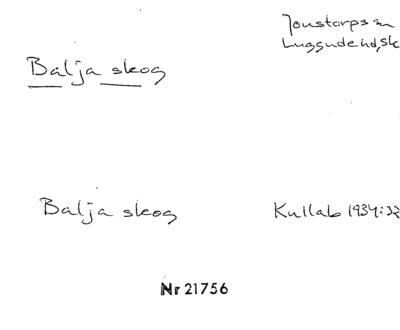 Jonstorps sn
Luggude hd, Sk
Balja skog
Balja skog Kullab 1934:32
Nr 21756